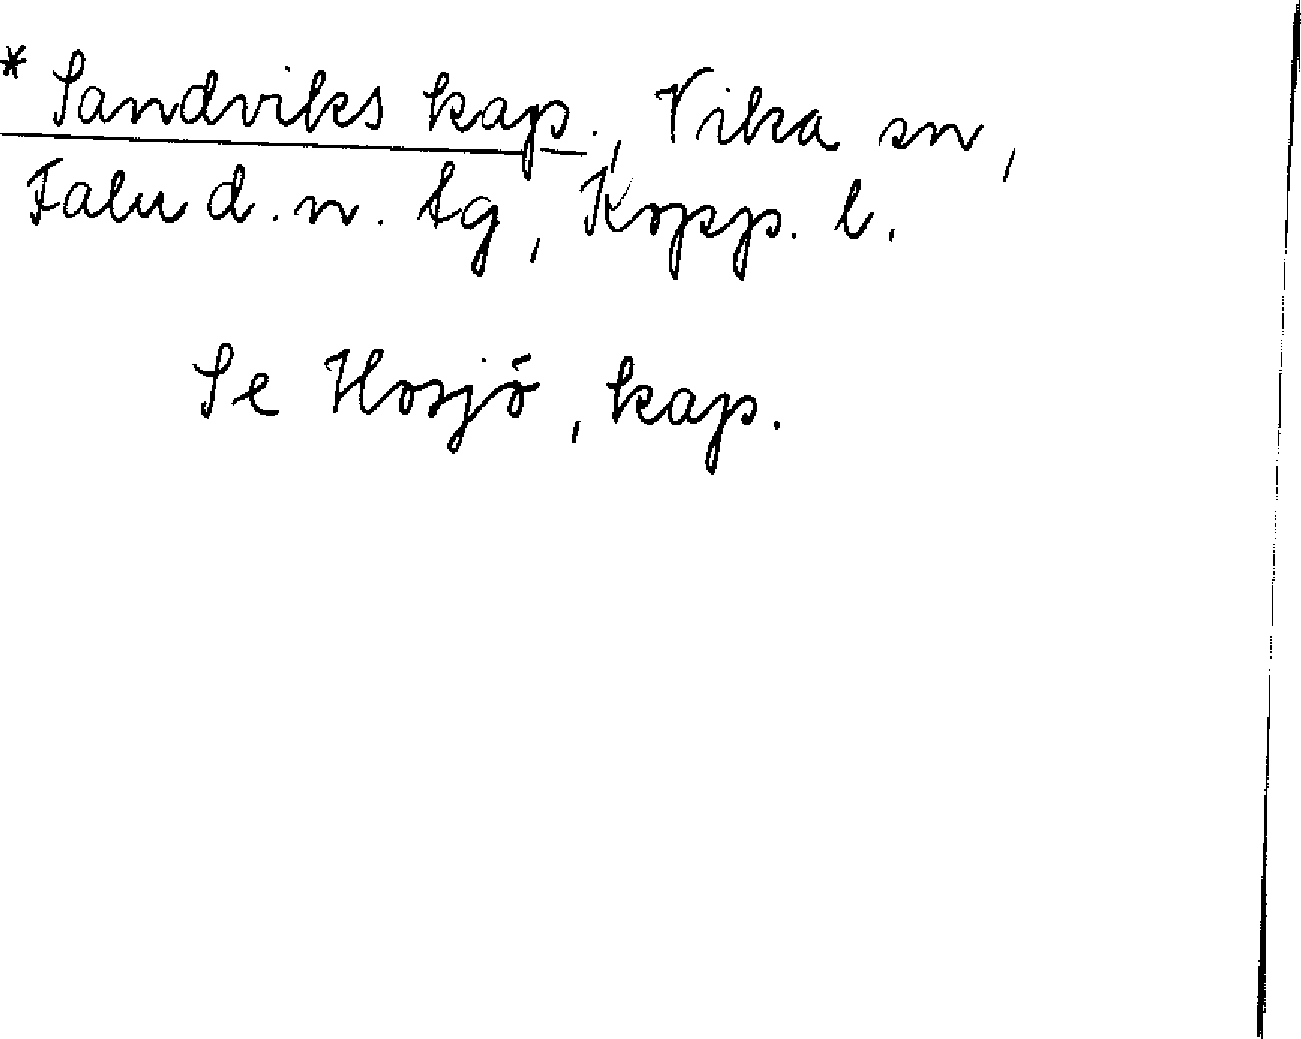 * Sandviks kap., Vika sn,
Falu d. n. tg, Kopp. l.
Se Hosjö, kap.